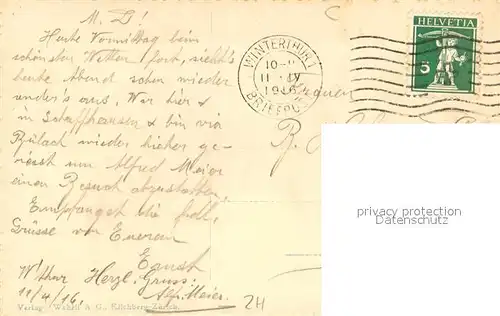 M. L!
Heute Vormittag beim
schönsten Wetter fort, sieht's
heute Abend schon wieder
anders aus. Wir hier &
in Schaffhausen & bin via
Bülach wieder hieher ge-
reist um Alfred Meier
einen Besuch abzustatten.
Empfanget die frdl.
Grüsse von Euerem
Ernst
W'thur Herzl. Gruss
11/4/16. Alf. Meier.
24
Verlag Wehrli A. G., Kilchberg-Zürich.
WINTERTHUR 1
10-11
11 IV
1916
BRIEFPOST
HELVETIA
5
privacy protection
Datenschutz